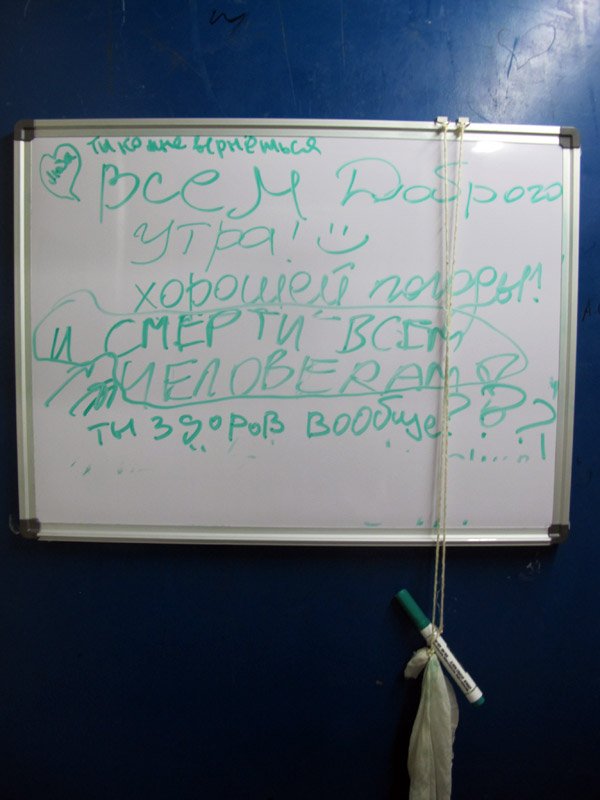 ти ко мне вернёться
ВСЕМ Доброго
утра!
хорошей погоды!
И СМЕРТИ ВСЕМ
ЧЕЛОВЕКАМ
ты здоров вообще???!